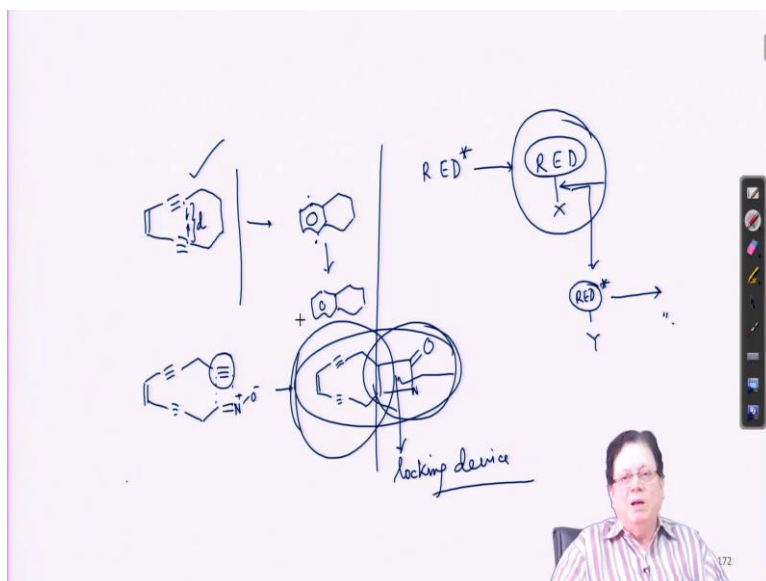 RED*
RED
X
d
RED*
Y
+
O
N
+
N
O-
locking device
172